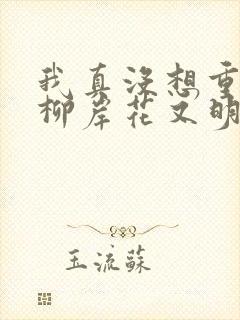 我真没想重
柳岸花又明
玉流蘇